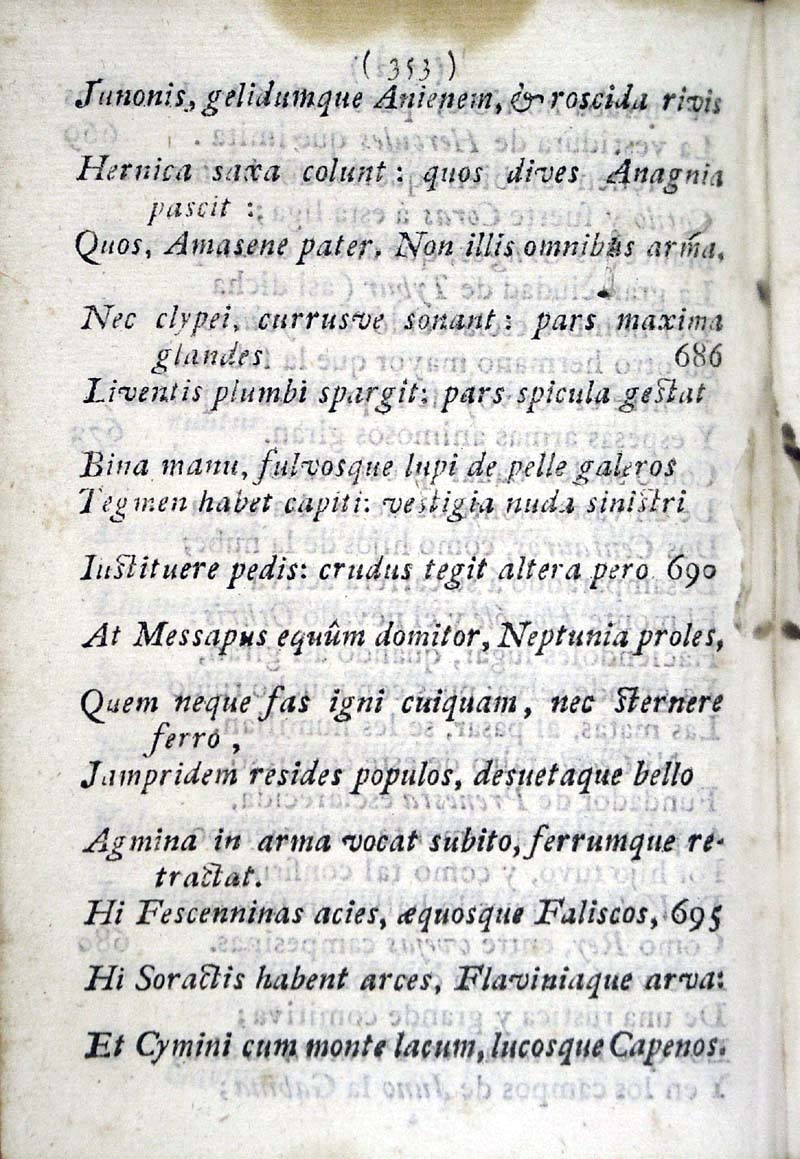 (353)
Junonis, gelidumque Anienem, & roscida rivis
Hernica saxa colunt: quos dives Anagnia
pascit :
Quos, Amasene pater. Non illis omnibus arma,
Nec clypei, currusve sonant: pars maxima
glandes 686
Liventis plumbi spargit; pars spicula gestat
Bina manu, fulvosque lupi de pelle galeros
Tegmen habet capiti: vestigia nuda sinistri
Iustituere pedis: crudus tegit altera pero 690
At Messapus equûm domitor, Neptunia proles,
Quem neque fas igni cuiquam, nec sternere
ferro,
Jampridem resides populos, desuetaque bello
Agmina in arma vocat subito, ferrumque re-
tractat.
Hi Fescenninas acies, æquosque Faliscos, 695
Hi Soractis habent arces, Flaviniaque arva:
Et Cymini cum monte lacum, lucosque Capenos.